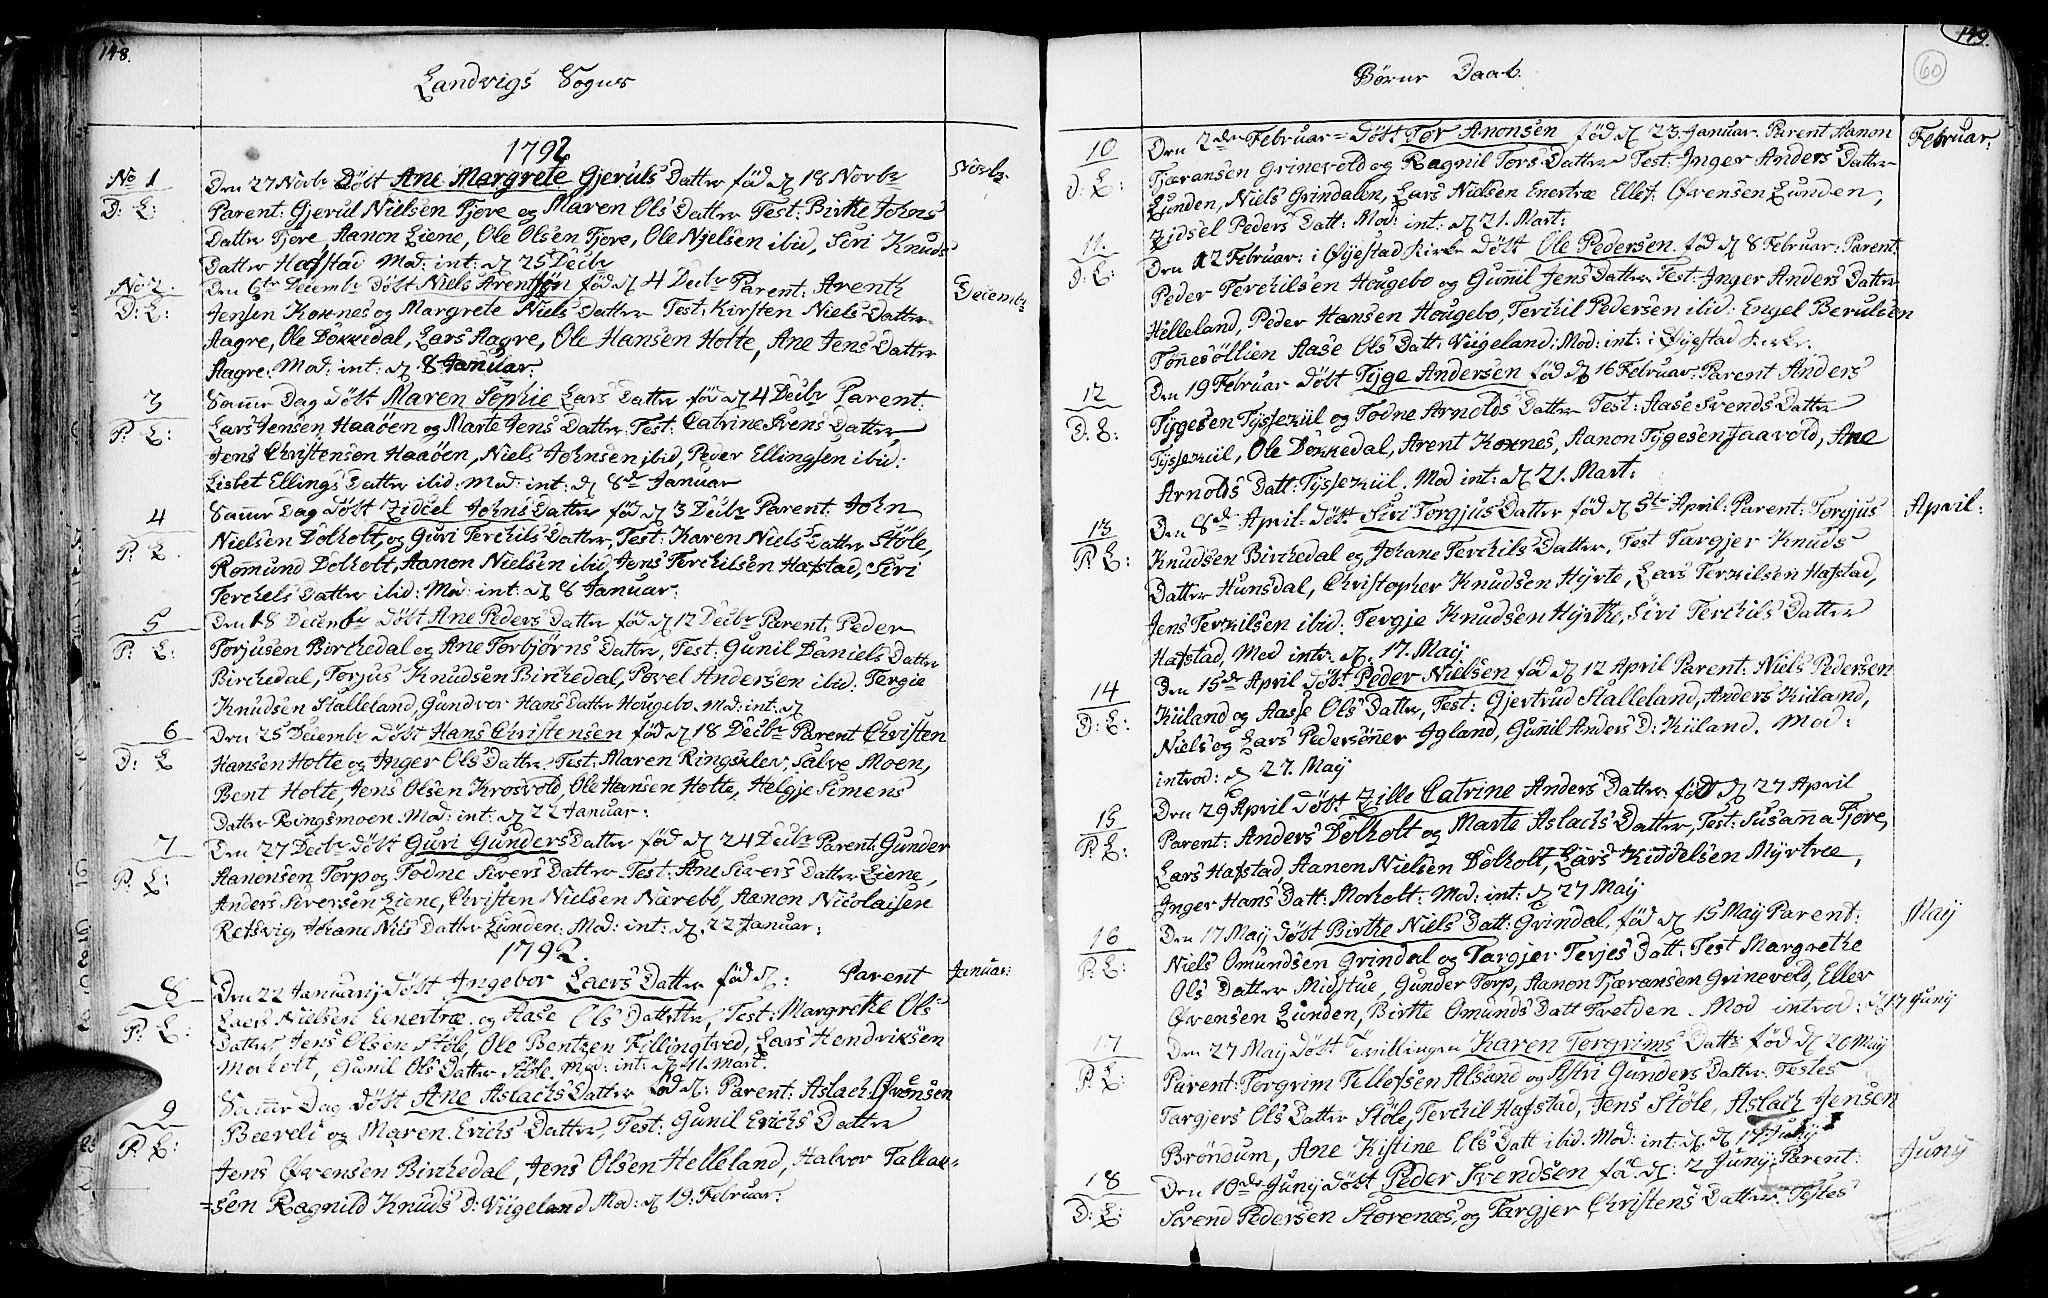 148.
Landvigs Sogns
1792
No 1
D: L:
Den 27 Novbr Döbt Ane Margrete Gjeruls Datter föd d 18 Novbr
Novbr
Parent: Gjerul Nielsen Fjore og Maren Ols Datter Test: Birthe Johns
Datter Fjore, Aanon Liene, Ole Olsen Fjore, Ole Nielsen ibid, Siri Knuds
Datter Hafstad Mod: int: d 25 Decbr
No 2.
D: L:
Den 6te Decembr döbt Niels Arentsön föd d 4 Decbr Parent: Arenth
Decembr
Jensen Koxnes og Margrete Niels Datter Test: Kirsten Niels Datter
Aagre, Ole Dokkedal, Lars Aagre, Ole Hansen Holte, Ane Jens Datter
Aagre. Mod: int: d 8 Januar:
3
P: L:
Samme Dag döbt Maren Sophie Lars Datter föd d 4 Decbr Parent:
Lars Jensen Haaöen og Marte Jens Datter Test: Catrine Svens Datter
Jens Christensen Haaöen, Niels Johnsen ibid, Peder Ellingsen ibid:
Lisbet Ellings Datter ibid: Mod: int: d 8de Januar
4
P: L
Samme Dag döbt Zidcel Johns Datter föd d 3 Decbr Parent: John
Nielsen Dolholt, og Guri Terchils Datter, Test: Karen Niels Datter Stöle,
Romund Dolholt, Aanon Nielsen ibid, Jens Terchilsen Hafstad, Siri
Terchels Datter ibid: Mod: int: d 8 Januar:
5
P: L:
Den 18 Decembr döbt Ane Peders Datter föd d 12 Decbr Parent: Peder
Torjusen Birchedal og Ane Torbjörns Datter, Test: Gunil Daniels Datter
Birchedal, Torjus Knudsen Birchedal, Povel Andersen ibid: Tergie
Knudsen Stalleland, Gundvor Hans Datter Hougebo. Mod: int: d
6
D: L
Den 25 Decembr döbt Hans Christensen föd d 18 Decbr Parent Christen
Hansen Holte og Inger Ols Datter Test: Maren Ringsklev, Salve Moen,
Bent Holte, Jens Olsen Krosvold, Ole Hansen Holte, Helgje Simens
Datter Ringsmoen Mod: int: d 22 Januar:
7
P: L:
Den 27 Decbr döbt Guri Gunders Datter föd d 24 Decbr Parent: Gunder
Aanonsen Torp og Todne Sivers Datter Test: Ane Sivers Datter Liene,
Anders Siversen Liene, Christen Nielsen Nærebö, Aanon Nicolaisen
Retsvig, Johane Nils Datter Lunden: Mod: int: d. 22 Januar:
1792.
8
P: L:
Den 22 Januarij döbt Ingebor Laers Datter föd d: Parent
Januar:
Laers Nielsen Enertræ og Aase Ols Dattter, Test: Margrethe Ols
Datter Jens Olsen Stöle, Ole Bentzen Fillingtved, Lars Hendriksen
Morholt, Gunil Ols Datter Stöle. Mod: int: d 11. Mart:
9
P: L:
Samme Dag döbt Ane Aslachs Datter föd d: Parent: Aslach Övensen
Beevel: og Maren Erichs Datter, Test: Gunil Erichs Datter
Jens Övensen Birchedal, Jens Olsen Helleland, Halvor Tallak=
=sen Ragnild Knuds D: Viigeland Mod: d 19. Februar:
149.
60
Börne Daab.
10
D: L:
Den 2den Februar= döbt Tor Anonsen föd d 23. Januar. Parent Aanon
Februar:
Tjæransen Grinevold og Ragnil Tors Datter Test: Inger Anders Datter
Lunden, Niels Grindalen, Lars Nielsen Enertræ Ellef: Övensen Lunden,
Zidsel Peders Datt: Mod: int: d 21. Mart:
11.
D: L:
Den 12 Februar: i Öyestad Kirke döbt Ole Pedersen föd d 8 Februar: Parent:
Peder Terchilsen Hougebo og Gunil Jens Datter Test: Inger Anders Datter
Helleland, Peder Hansen Hougebo, Terchil Pedersen ibid: Engel Berulsen
Tönnesöllien Aase Ols Datt: Viigeland: Mod: int: i Öyestad Kirke.
12
D: L:
Den 19 Februar döbt Tyge Andersen föd d 16 Februar: Parent Anders
Tygesen Tyssekiil og Todne Arnolds Datter Test: Aase Svends Datter
Tyssekiil, Ole Dokkedal, Arent Koxnes, Aanon Tygesen Jaavold, Ane
Arnolds Datt: Tyssekiil. Mod int: d 21. Mart:
13
P: L:
Den 8de April: döbt Siri Torgjus Datter föd d 5te April: Parent: Torgjus
April:
Knudsen Birchedal og Johane Terchils Datter, Test Targjer Knuds
Datter Hunsdal, Christopher Knudsen Hyrte, Lars Terkilsen Hafstad,
Jens Terkilsen ibid: Tergje Knudsen Hyrthe, Siri Terchils Datter
Hafstad, Mod intr: d: 17. Maij
14
D: L:
Den 15de April döbt Peder Nielsen föd d 12 April Parent: Niels Pedersen
Kiiland og Aasse Ols Datter, Test: Gjertrud Stalleland, Anders Kiiland,
Niels og Lars Pedersönner Igland, Gunil Anders D: Kiiland. Mod:
introd: d 27. Maij
15
P: L:
Den 29 April döbt Zille Catrine Anders Datter föd d 27 April
Parent: Anders Dolholt og Marte Aslachs Datter, Test: Susanna Fjore,
Lars Hafstad, Aanon Nielsen Dolholt, Lars Kiddelsen Myrtræ,
Inger Hans Datt: Morholt: Mod: int: d 27 Maij
16
P: L:
Den 17 Maij döbt Birthe Niels Datt: Grindal, föd d 15 Maij Parent:
Maij
Niels Omundsen Grindal og Targjer Terjes Datt: Test Margrethe
Ols Datter Midstue, Gunder Torp, Aanon Tjæransen Grinevold, Ellev
Övensen Lunden, Birthe Omunds Datt Tvetden. Mod introd: d 17 Junij
17
P: L:
Den 27 Maij döbt Tevillingen Karen Tergrims Dattr föd d 20 Maij
Parent: Torgrim Tellefsen Alsand og Astri Gunders Datter Testes
Targjers Ols Datter Stöle, Terchil Hafstad, Jens Stöle, Aslach Jensen
Bröndum, Ane Kistine Ols Datt ibid. Mod: int: d. d 17 Junij
18
D: L:
Den 10de Junij döbt Peder Svendsen föd: d: 2 Junij Parent:
Junij
Svend Pedersen Storenæs, og Targjer Christens Datter Testes